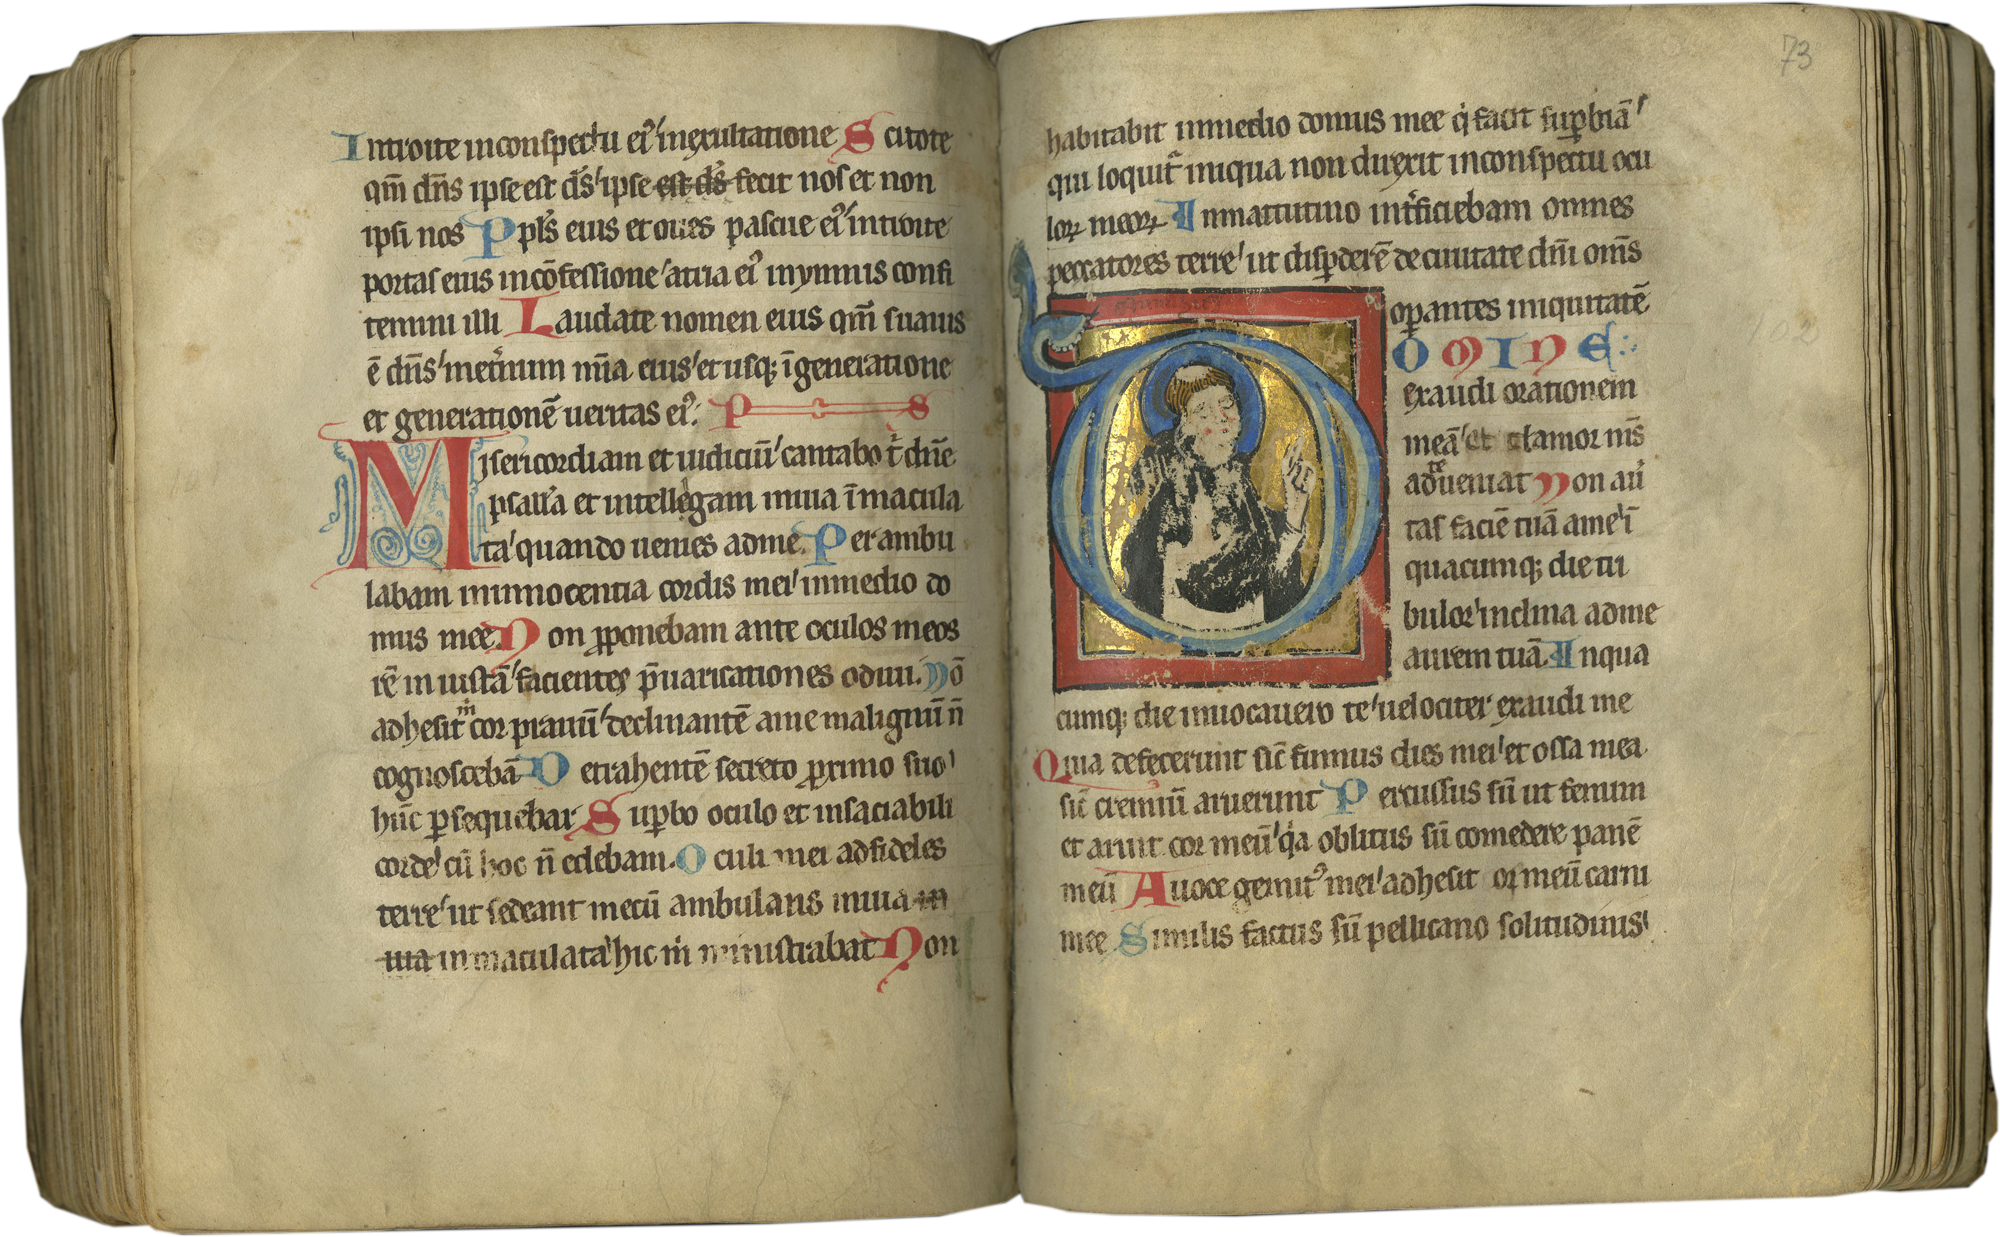 Introite inconspectu ei⁹ inexultatione Scitote
qm̄ dn̄s ipse est d̄s ipse est d̄s fecit nos et non
ipsi nos Ppl̄s eius et oues pascue ei⁹ introite
portas eius incōfessione atria ei⁹ inymnis confi
temini illi Laudate nomen eius qm̄ suauis
ē dn̄s inet̄num mīa eius et usq; ī generatione
et generationē ueritas ei⁹: PS
Misericordiam et iudiciū cantabo t̄ dn̄e
psallā et intellegam inuia īmacula
ta quando uenies adme. Perambu
labam ininnocentia cordis mei inmedio do
mus mee. Non ꝓponebam ante oculos meos
rē iniustā facientes p̄uaricationes odiui. Nō
adhesit m̄ cor prauū declinantē ame malignū n̄
cognoscebā Detrahentē secreto ꝓximo suo
hūc ꝑsequebar Suꝑbo oculo et insaciabili
corde cū hoc n̄ edebam. Oculi mei adfideles
terre ut sedeant mecū ambulans inuia in
uia inmaculata hic m̄ ministrabat Non
73
habitabit inmedio domus mee q̇ facit suꝑbiā
qui loquit̄ iniqua non diyexit inconspectu ocu
loꝝ meoꝝ Inmatutino int̄ficiebam omnes
peccatores terre ut disꝑderē deciuitate dn̄i om̄s
oꝑantes iniquitatē
DOMINE
exaudi orationem
meā et clamor m̄s
ad te ueniat Non aū
tas faciē tuā ame ī
quacumq; die tri
bulor inclina adme
aurem tuā. Inqua
cumq; die inuocauero te uelociter exaudi me
Quia defecerunt sic̄ fumus dies mei et ossa mea
sic̄ cremiū aruerunt Percussus sū ut fenum
et aruit cor meū q̇a oblitus sū comedere panē
meū Auoce gemit⁹ mei adhesit os meū carni
mee Similis factus sū pellicano solitudinis